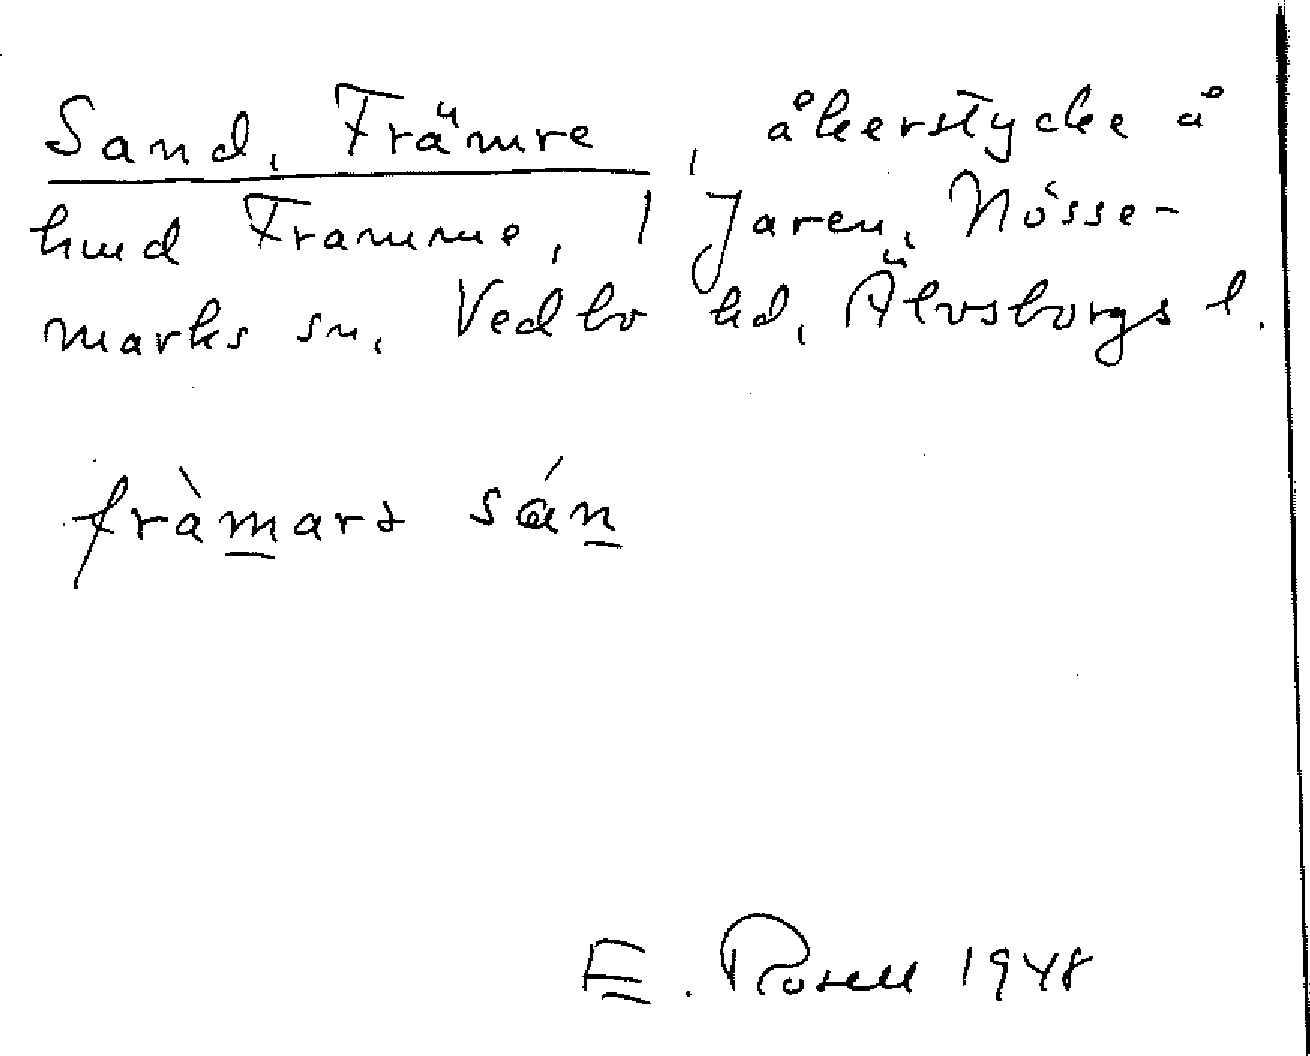 Sand, Främre, åkerstycke å
hmd Framme, 1 Jaren, Nösse-
marks sn, Vedbo hd, Älvsborgs l.
fràmara sán
E. Rosell 1948